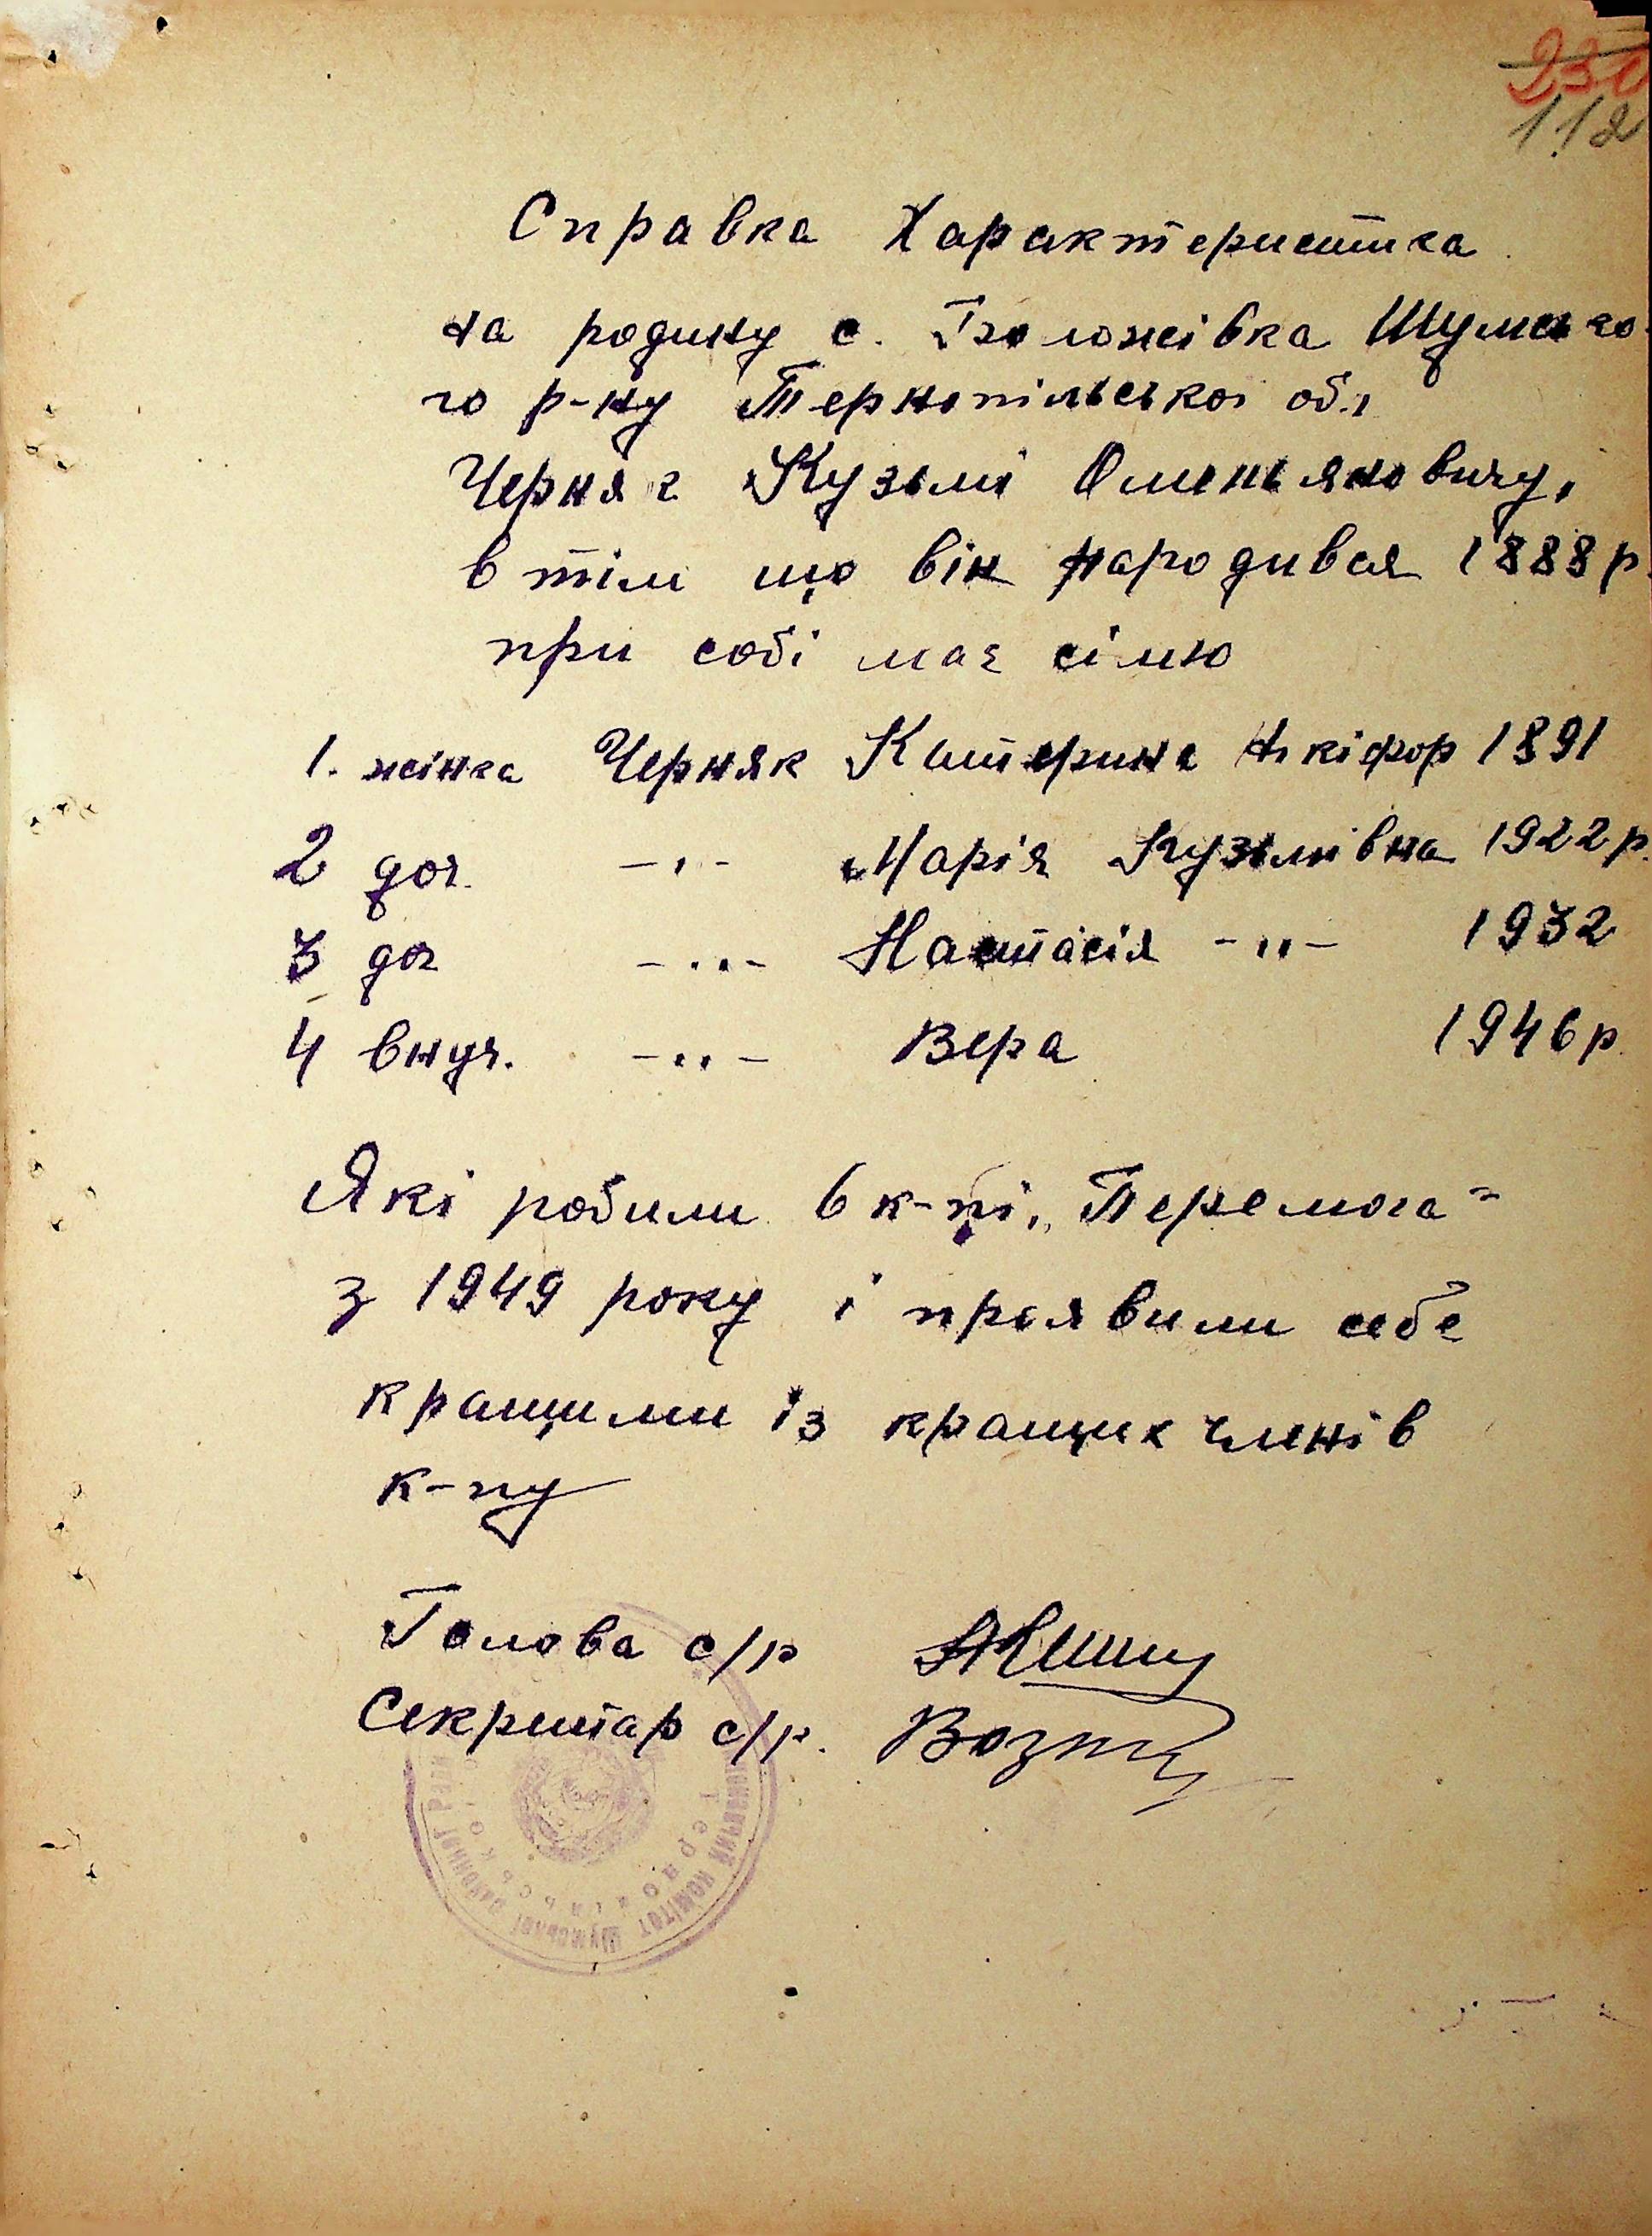 230
112
Справка Характеристика
на родину с. Боложівка Шумсько
го р-ну Тернопільської обл
Черняк Кузьмі Омельяновичу,
в тім що він народився 1888 р
при собі має сімю
1. жінка Черняк Катерина Нікіфор 1891
2 доч. -"- Марія Кузьмівна 1922 р.
3 доч -"- Настасія -"- 1932
4 внуч. -"- Вера 1946 р
Які робили в к-пі „Перемога"
з 1949 року і проявили себе
кращими із кращих членів
к-пу
Голова с/р
Секритар с/р.